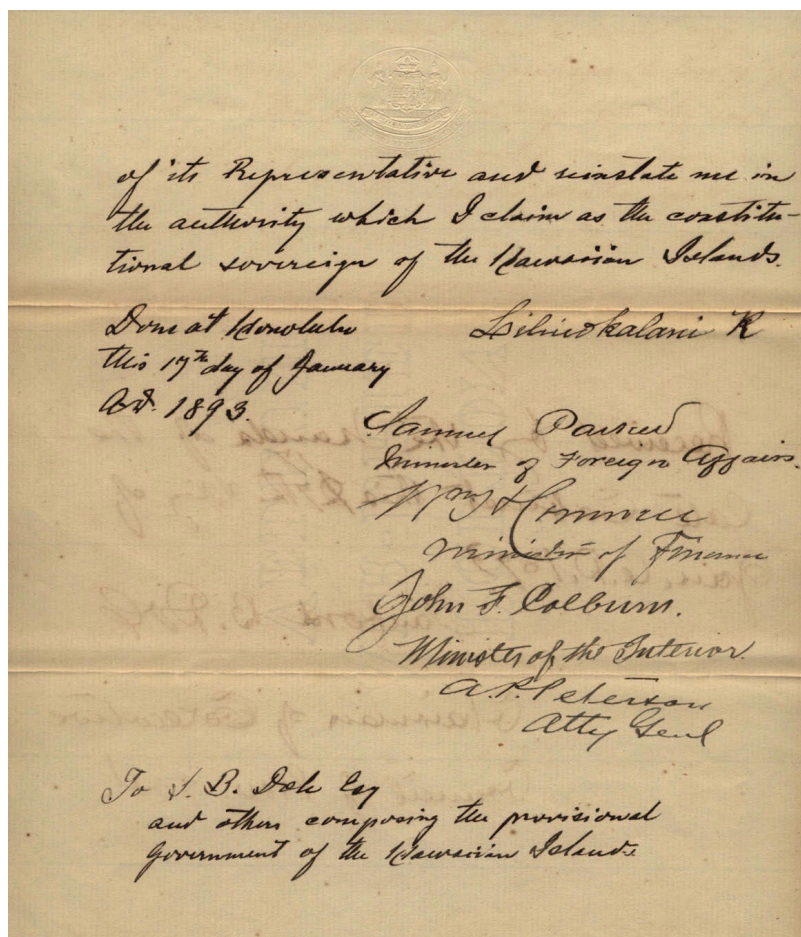 of its Representative and reinstate me in
the authority which I claim as the constitu-
tional sovereign of the Hawaiian Islands.
Done at Honolulu
this 17th day of January
A.D. 1893.
Liliuokalani R
Samuel Parker
Minister of Foreign Affairs.
Wm H Cornwell
Minister of Finance
John F. Colburn.
Minister of the Interior.
A. P. Peterson
Atty Genl
To S. B. Dole Esq
and others composing the provisional
government of the Hawaiian Islands